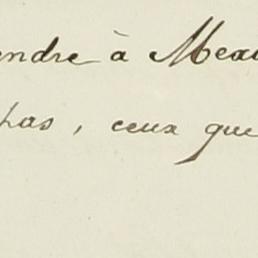 endre à Meau
pas, ceux que